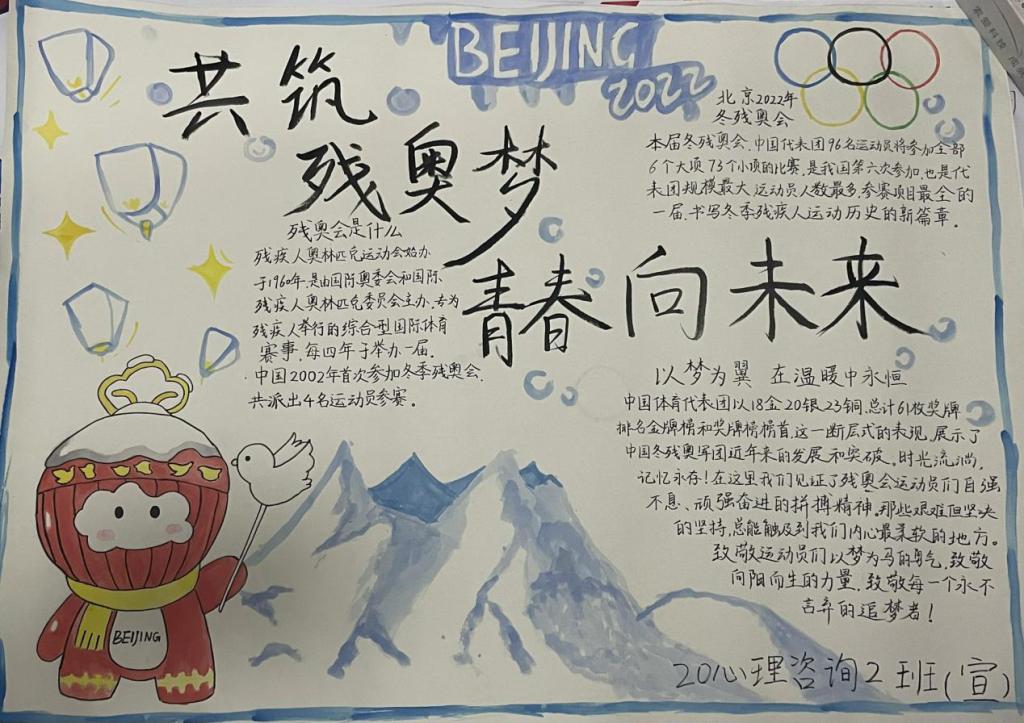 BEIJING
2022
共筑
残奥梦
青春向未来
北京2022年
冬残奥会
本届冬残奥会,中国代表团96名运动员将参加全部
6个大项73个小项的比赛,是我国第六次参加,也是代
表团规模最大,运动员人数最多,参赛项目最全的
一届,书写冬季残疾人运动历史的新篇章。
残奥会是什么
残疾人奥林匹克运动会始办
于1960年,是由国际奥委会和国际
残疾人奥林匹克委员会主办,专为
残疾人举行的综合型国际体育
赛事,每四年于举办一届。
中国2002年首次参加冬季残奥会,
共派出4名运动员参赛。
以梦为翼 在温暖中永恒
中国体育代表团以18金20银23铜,总计61枚奖牌
排名金牌榜和奖牌榜榜首,这一断层式的表现,展示了
中国冬残奥军团近年来的发展和突破。时光流淌,
记忆永存!在这里我们见证了残奥会运动员们自强
不息、顽强奋进的拼搏精神,那些艰难但坚决
的坚持,总能触及到我们内心最柔软的地方。
致敬运动员们以梦为马的勇气,致敬
向阳而生的力量,致敬每一个永不
言弃的追梦者!
BEIJING
20心理咨询2班(宣)